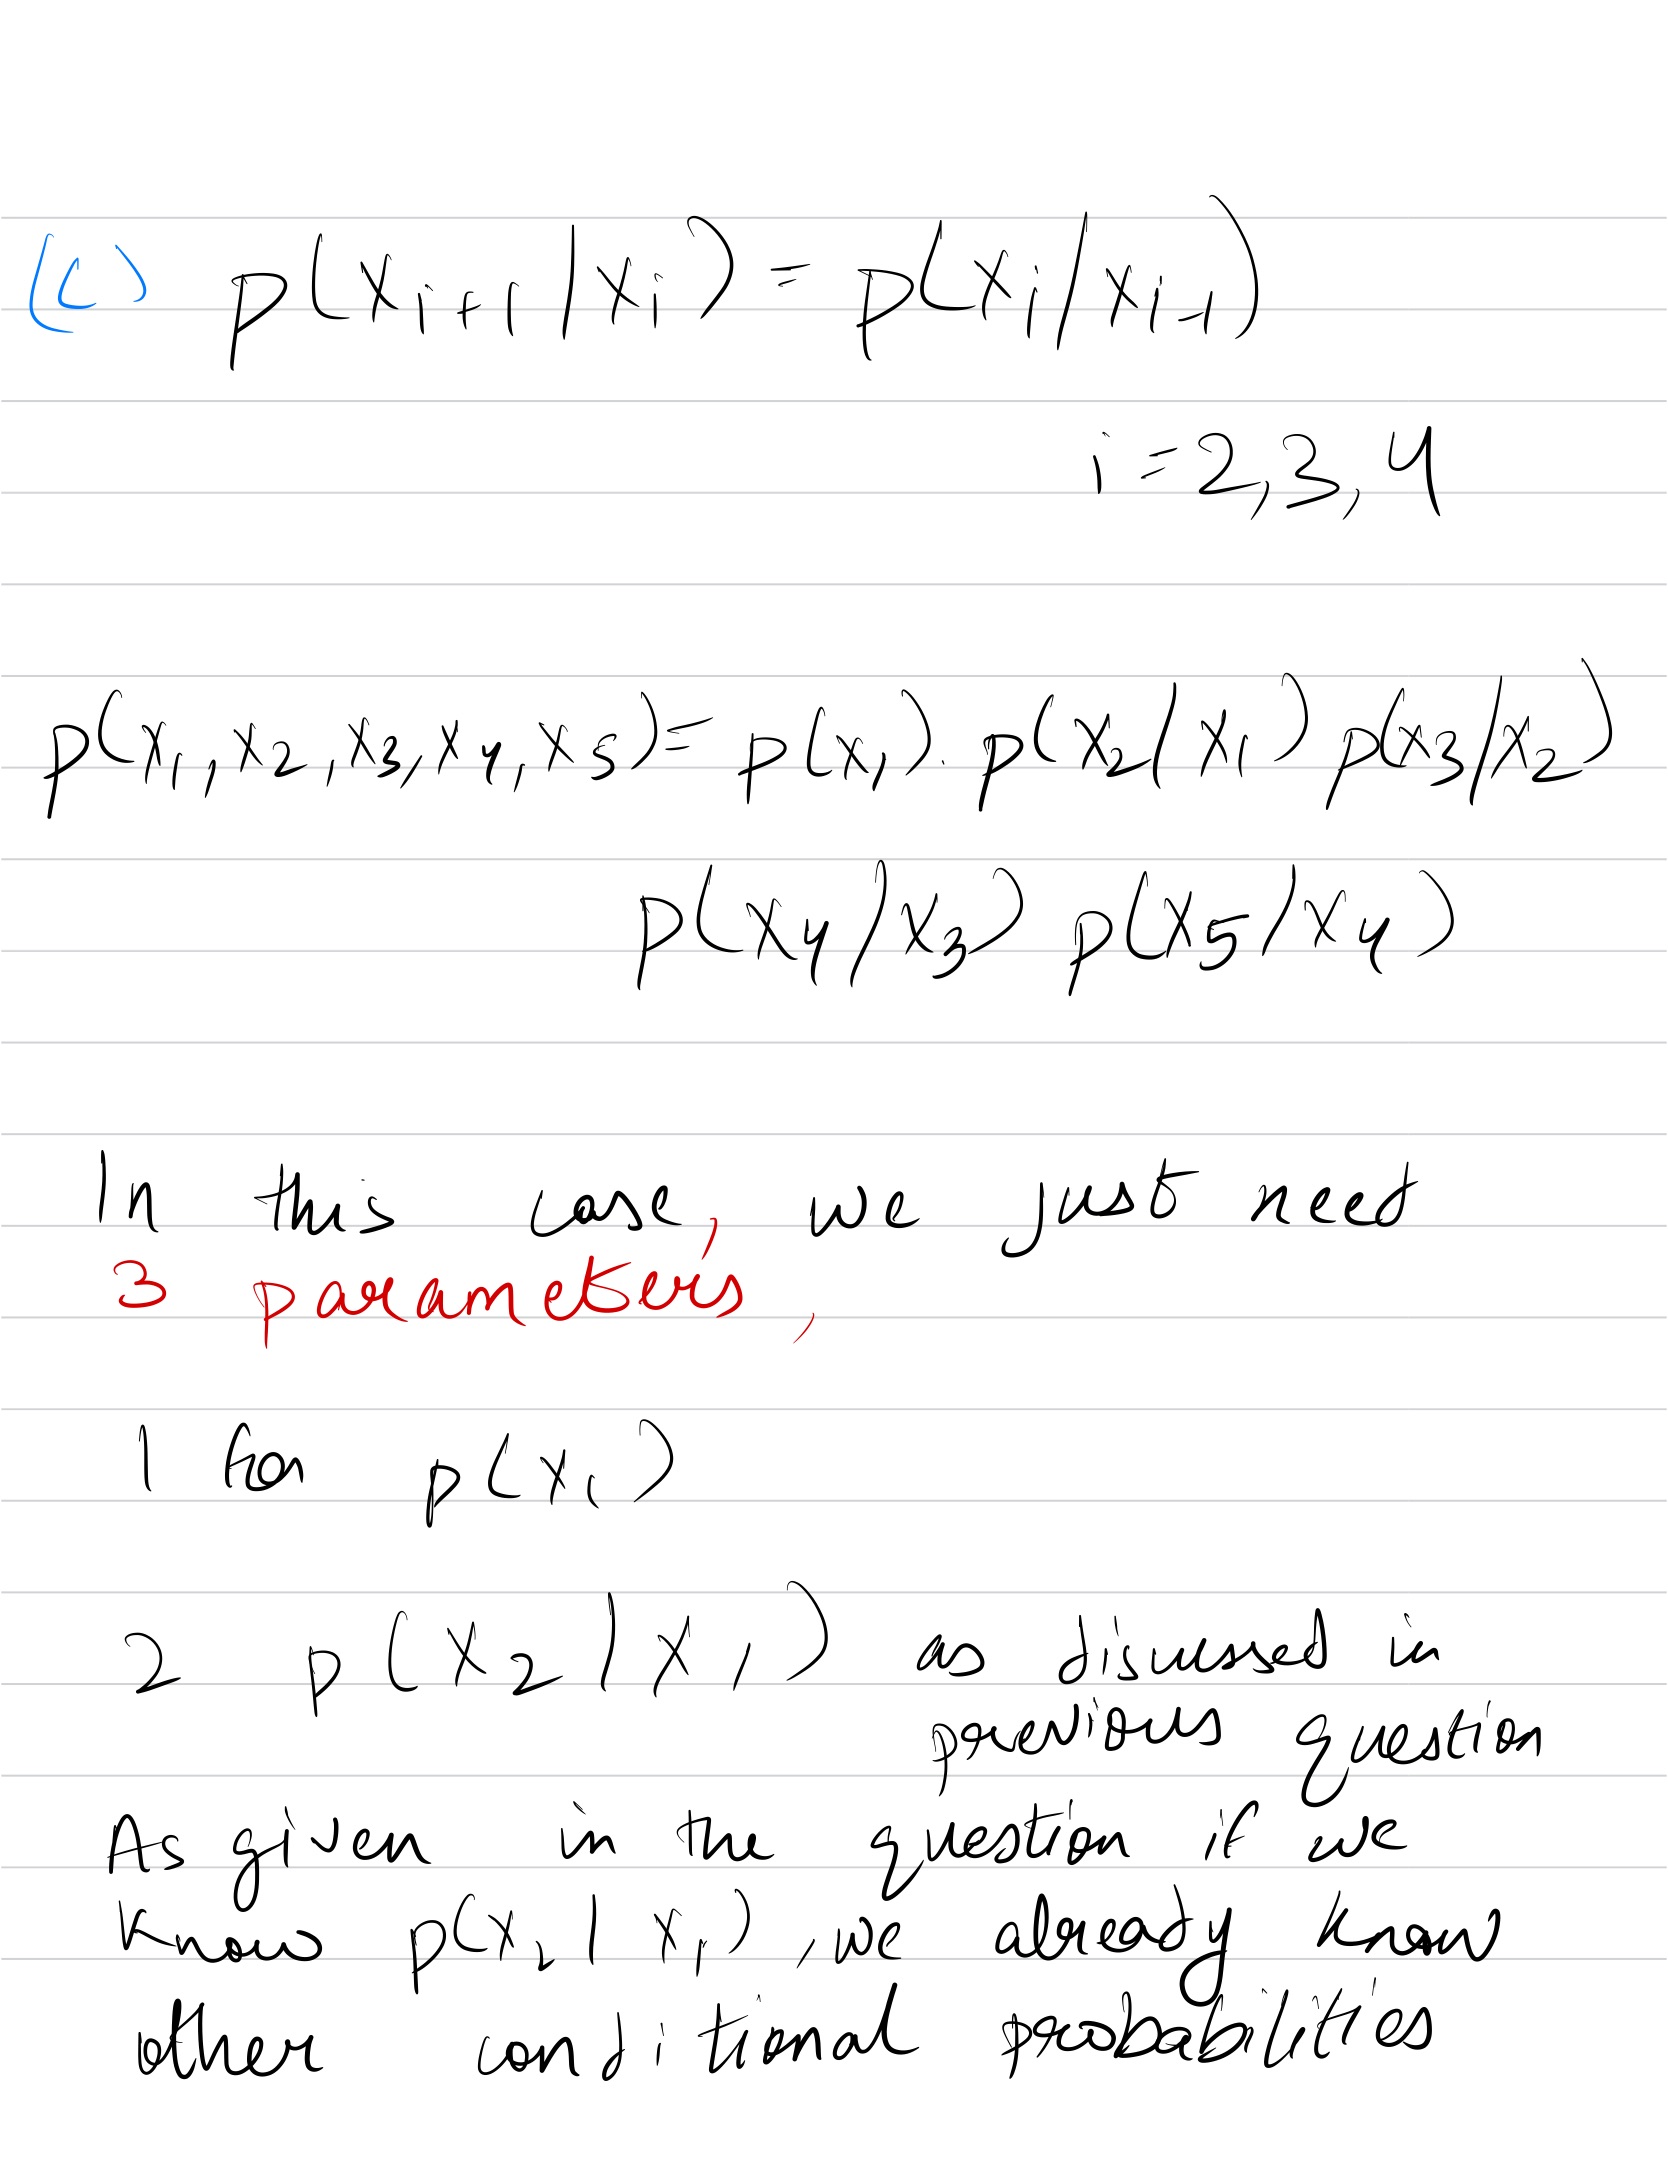 (c) p(x_{i+1}/x_i) = p(x_i/x_{i-1})
i = 2, 3, 4
p(x_1, x_2, x_3, x_4, x_5) = p(x_1). p(x_2/x_1) p(x_3/x_2)
p(x_4/x_3) p(x_5/x_4)
In this case, we just need
3 parameters,
1 for p(x_1)
2 p(x_2|x_1) as discussed in
previous question
As given in the question if we
know p(x_2|x_1), we already know
other conditional probabilities